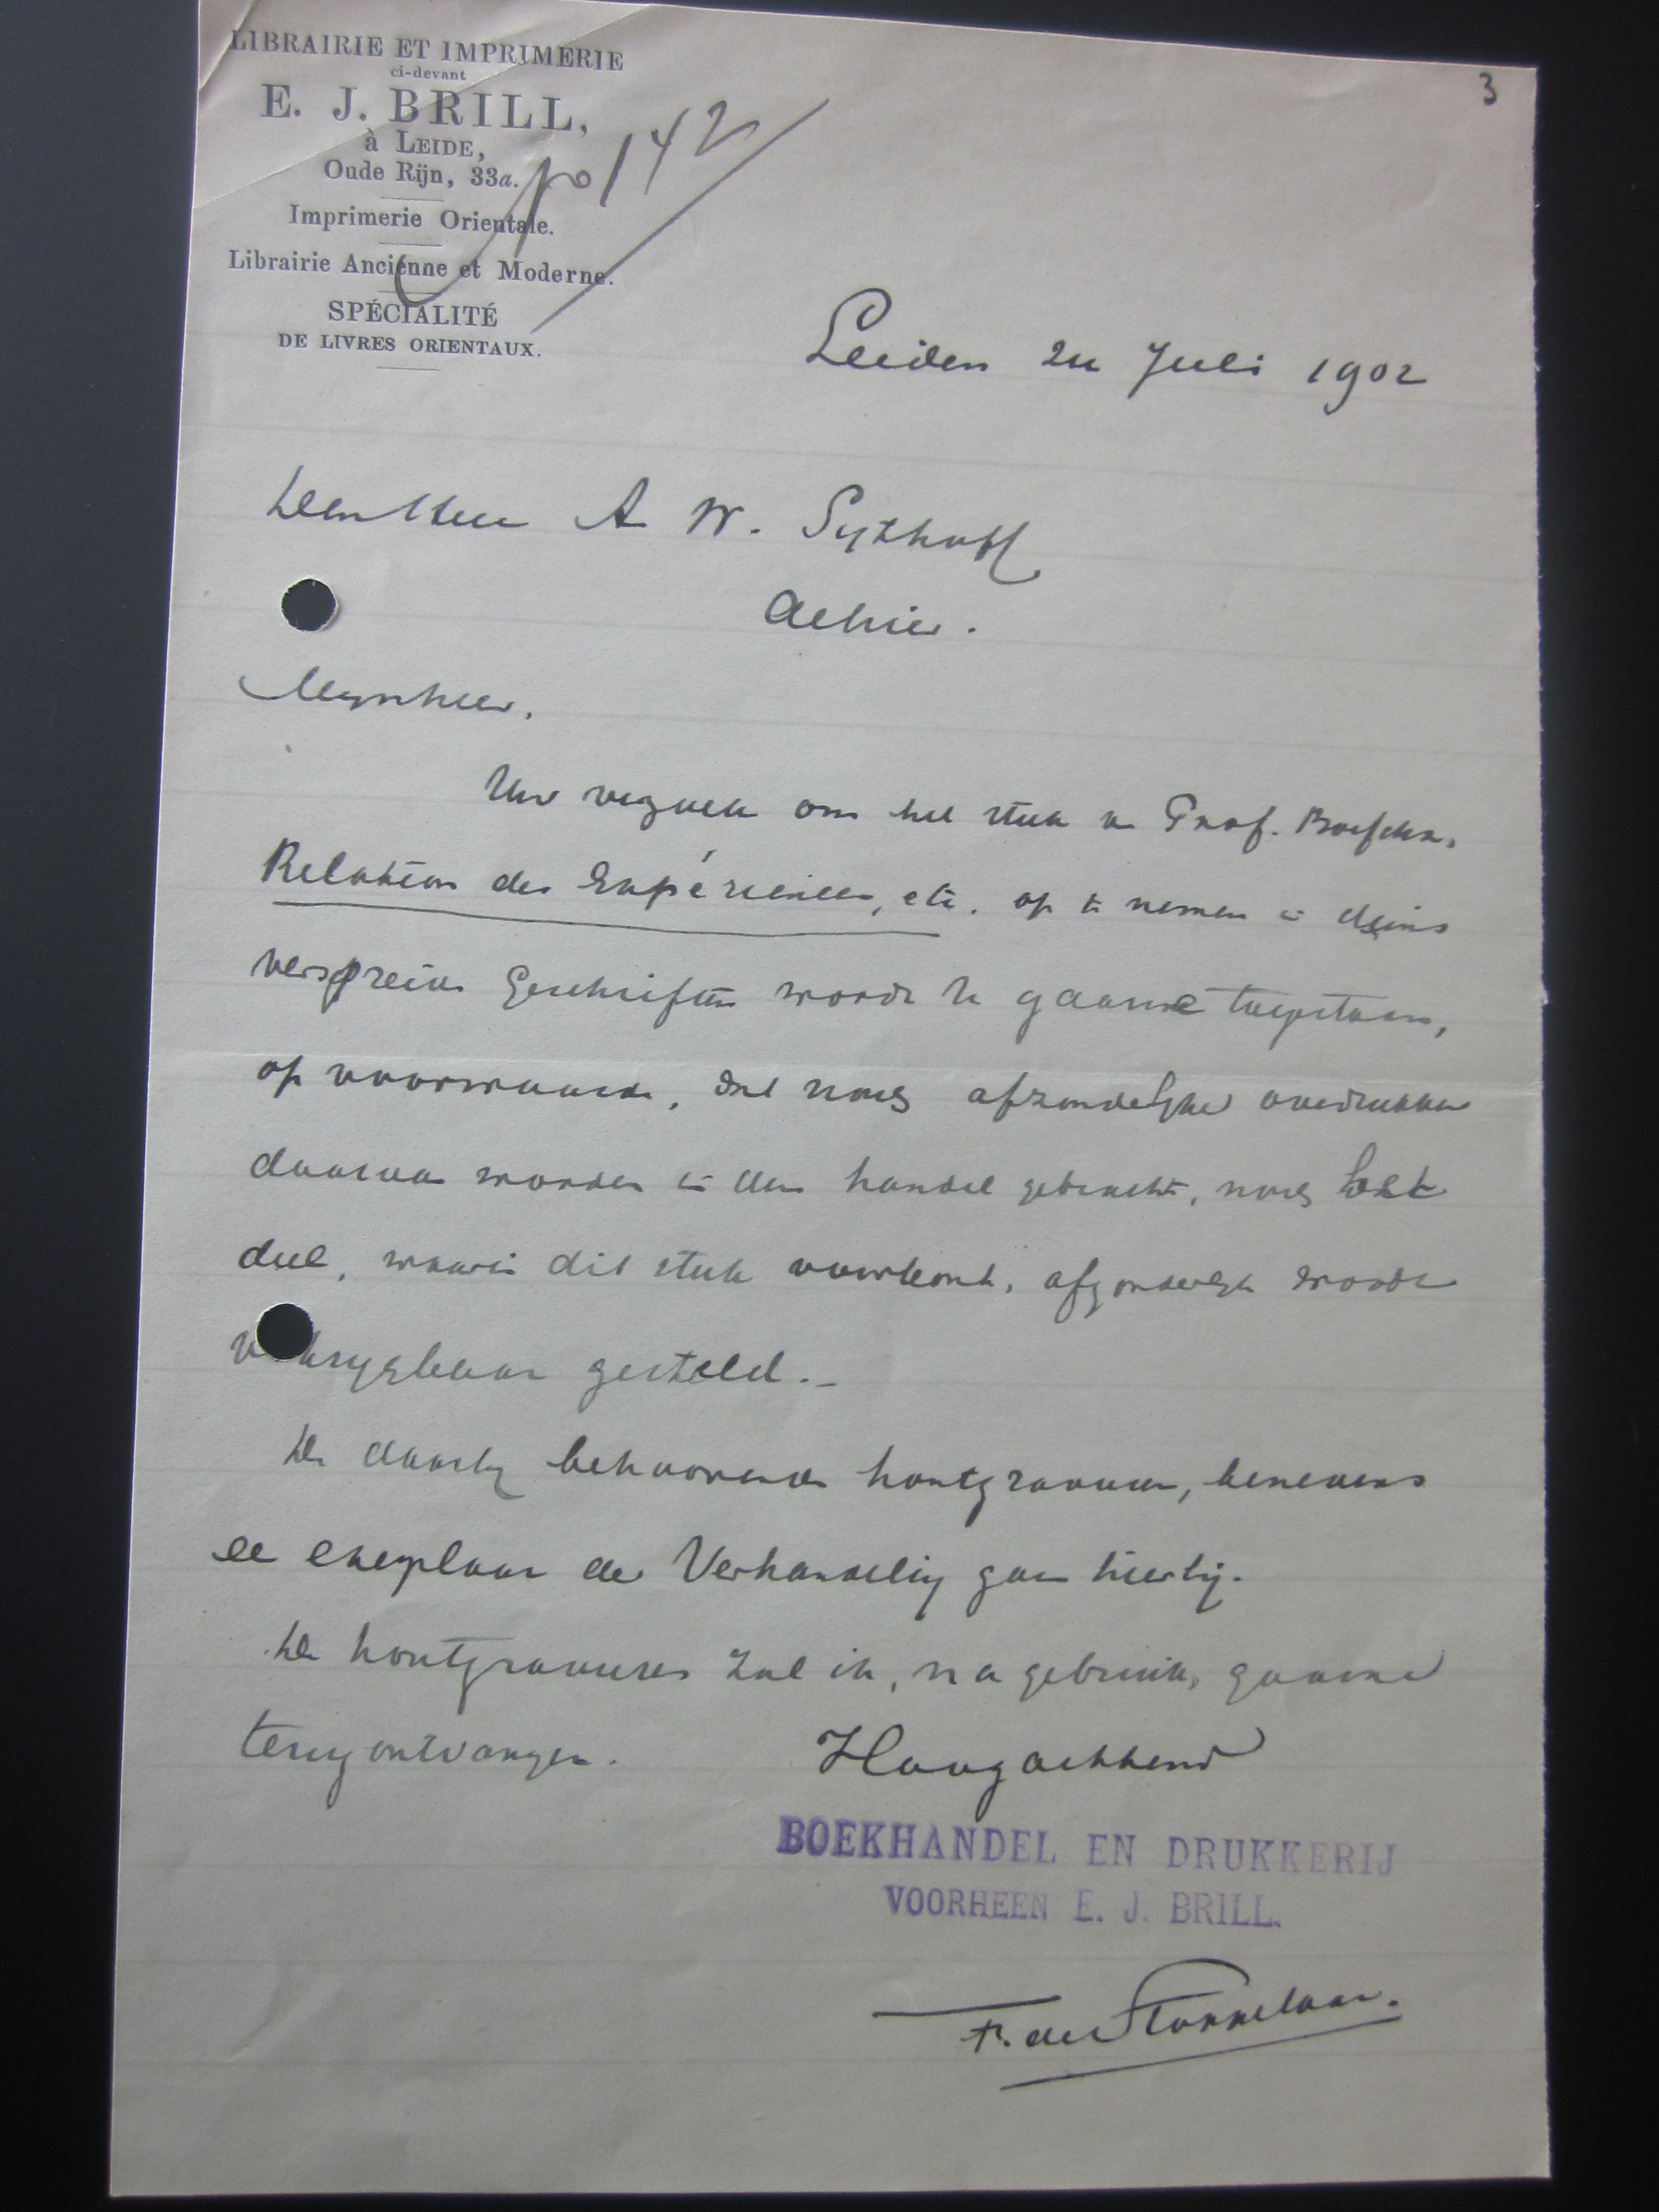 3
LIBRAIRIE ET IMPRIMERIE
ci-devant
E. J. BRILL,
à LEIDE,
Oude Rijn, 33a.
Imprimerie Orientale.
Librairie Ancienne et Moderne.
SPÉCIALITÉ
DE LIVRES ORIENTAUX.
142
Leiden 24 Juli 1902
Den Heer A W. Sythoff
Alhier.
Mynheer,
Uw verzoek om het stuk v Prof. Bosscha,
Relation des Expériences, etc. op te nemen in diens
verspreide Geschriften wordt U gaarne toegestaan,
op voorwaarde, dat noch afzonderlyke overdrukken
daarvan worden in den handel gebracht, noch het
deel, waarin dit stuk voorkomt, afzonderlyk wordt
verkrygbaar gesteld.-
De daarby behoorende houtgravuren, benevens
een exemplaar der Verhandeling gaan hierbij.
De houtgravures zal ik, na gebruik, gaarne
terugontvangen.
Hoogachtend
BOEKHANDEL EN DRUKKERIJ
VOORHEEN E. J. BRILL.
F. de Stoppelaar.